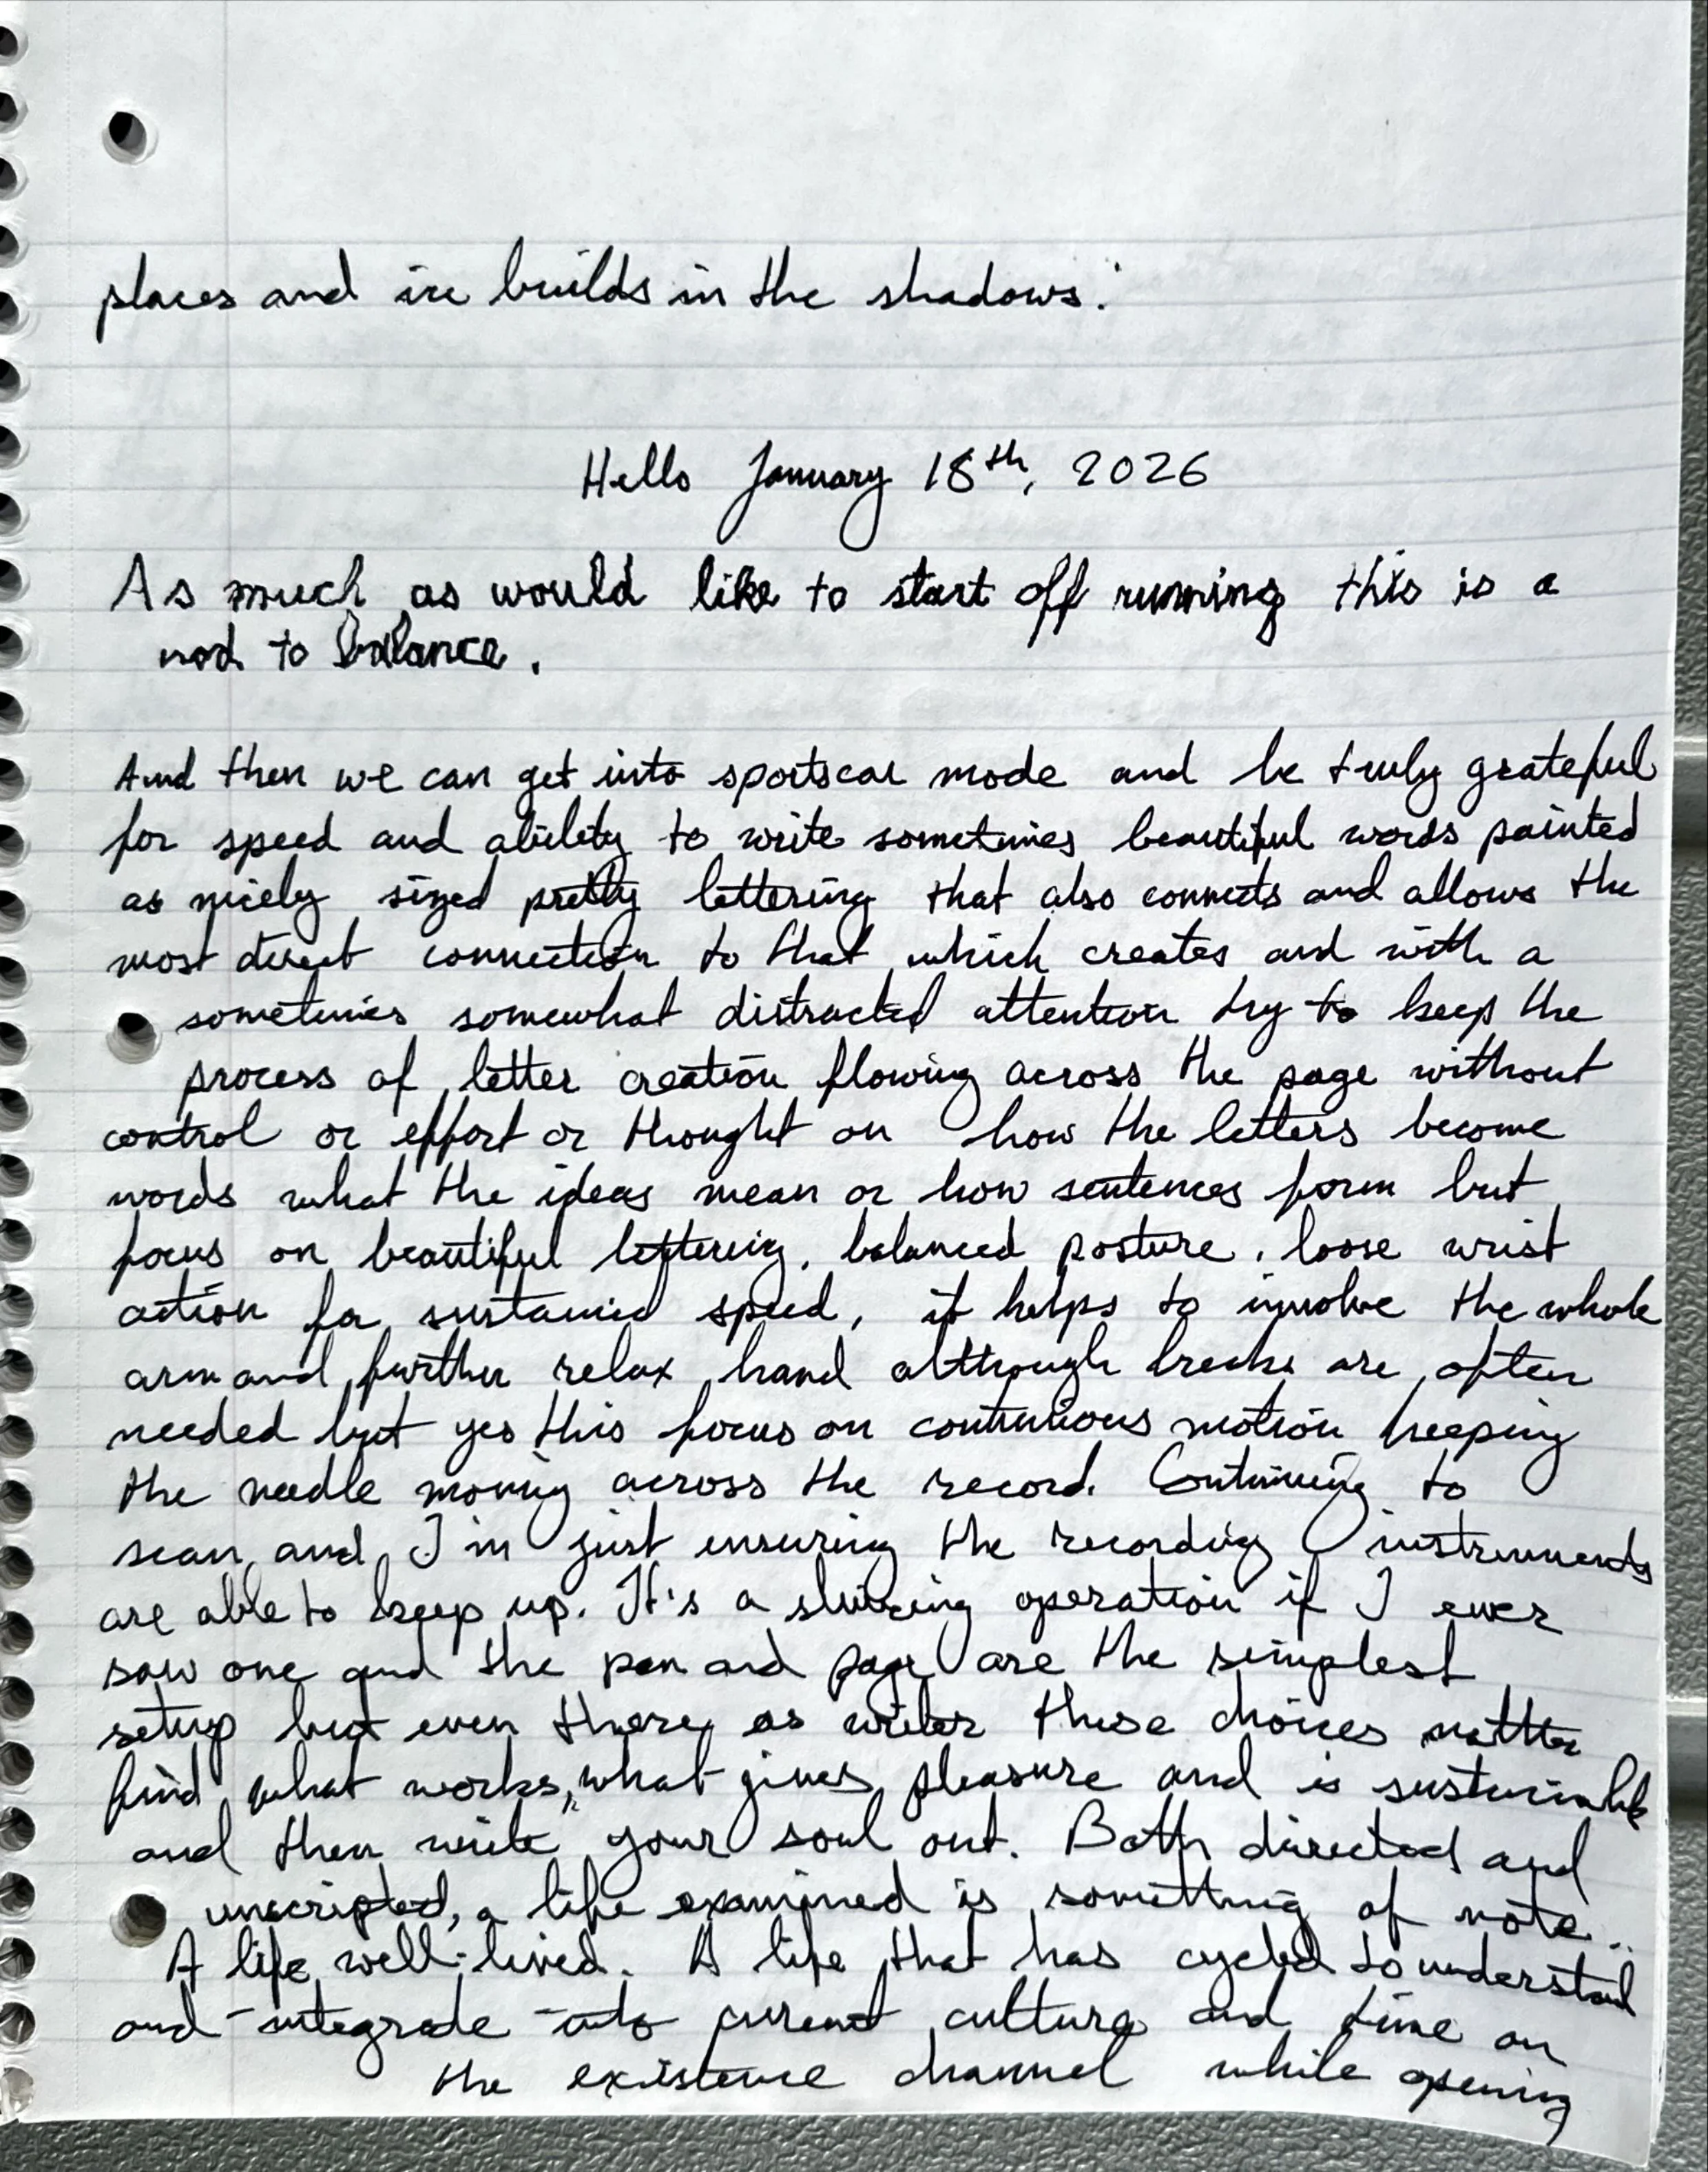 places and ire builds in the shadows.
Hello January 18th, 2026
As much as would like to start off running this is a
nod to balance.
And then we can get into sportscar mode and be truly grateful
for speed and ability to write sometimes beautiful words painted
as nicely sized pretty lettering that also connects and allows the
most direct connection to that which creates and with a
sometimes somewhat distracted attention try to keep the
process of letter creation flowing across the page without
control or effort or thought on how the letters become
words what the ideas mean or how sentences form but
focus on beautiful lettering, balanced posture, loose wrist
action for sustained speed, it helps to involve the whole
arm and further relax hand although breaks are often
needed but yes this focus on continuous motion keeping
the needle moving across the record. Continuing to
scan and I'm just ensuring the recording instruments
are able to keep up. It's a operation if I ever
saw one and the pen and page are the simplest
setup but even there, as writer these choices matter
find what works, what gives pleasure and is sustainable
and then write your soul out. Both directed and
unscripted, a life examined is something of note..
A life well-lived. A life that has cycled to understand
and integrate into current culture and time on
the existence channel while opening